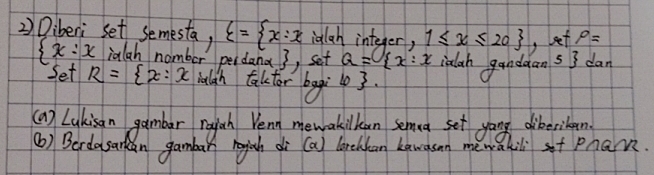 2) Diberi set semesta, ξ = {x : x ialah integer, 1 ≤ x ≤ 20}, set P =
{x : x ialah nombor perdana}, set Q = {x : x ialah gandaan 5} dan
Set R = {x : x ialah faktor bagi 10}.
(a) Lukisan gambar rajah Venn mewakilkan semua set yang diberikan.
(b) Berdasarkan gambar rajah di (a) lorekkan kawasan mewakili set P∩Q∩R.